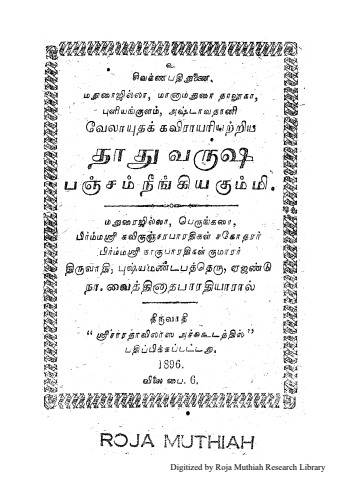 உ
சிவகணபதிதுணை.
மதுரைஜில்லா, மானாமதுரை தாலூகா,
புளியங்குளம், அஷ்டாவதானி
வேலாயுதக் கவிராயரியற்றிய
தாதுவருஷ
பஞ்சம்நீங்கியகும்மி.
மதுரைஜில்லா, பெருங்கரை,
பிரம்மஸ்ரீ கவிகுஞ்சரபாரதிகள் சகோதரர்
பிரம்மஸ்ரீ நாகுபாரதிகள் குமாரர்
திருவாதி, புஷ்யமண்டபத்தெரு, ஏஜண்டு
நா. வைத்தினதபாரதியாரால்
திருவாதி
"ஸ்ரீசாரதாவிலாஸ அச்சுகூடத்தில்"
பதிப்பிக்கப்பட்டது.
1896.
விலை பை. 6.
ROJA MUTHIAH
Digitized by Roja Muthiah Research Library